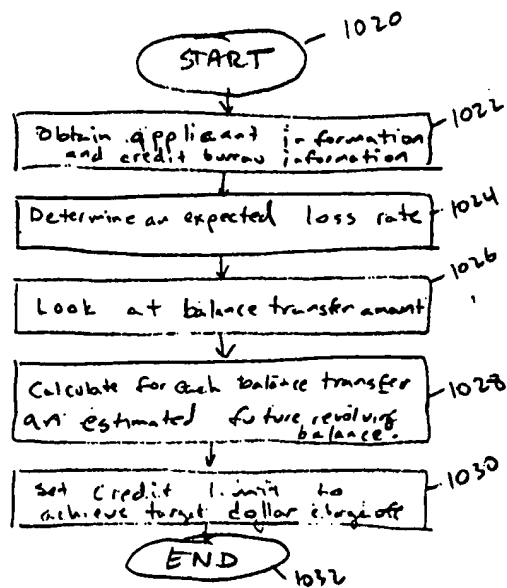 1020
START
1022
Obtain applicant information
and credit bureau information
1024
Determine an expected loss rate
1026
Look at balance transfer amount
Calculate for each balance transfer
1028
an estimated future revolving
balance.
1030
Set credit limit to
achieve target dollar chargeoff
END
1032